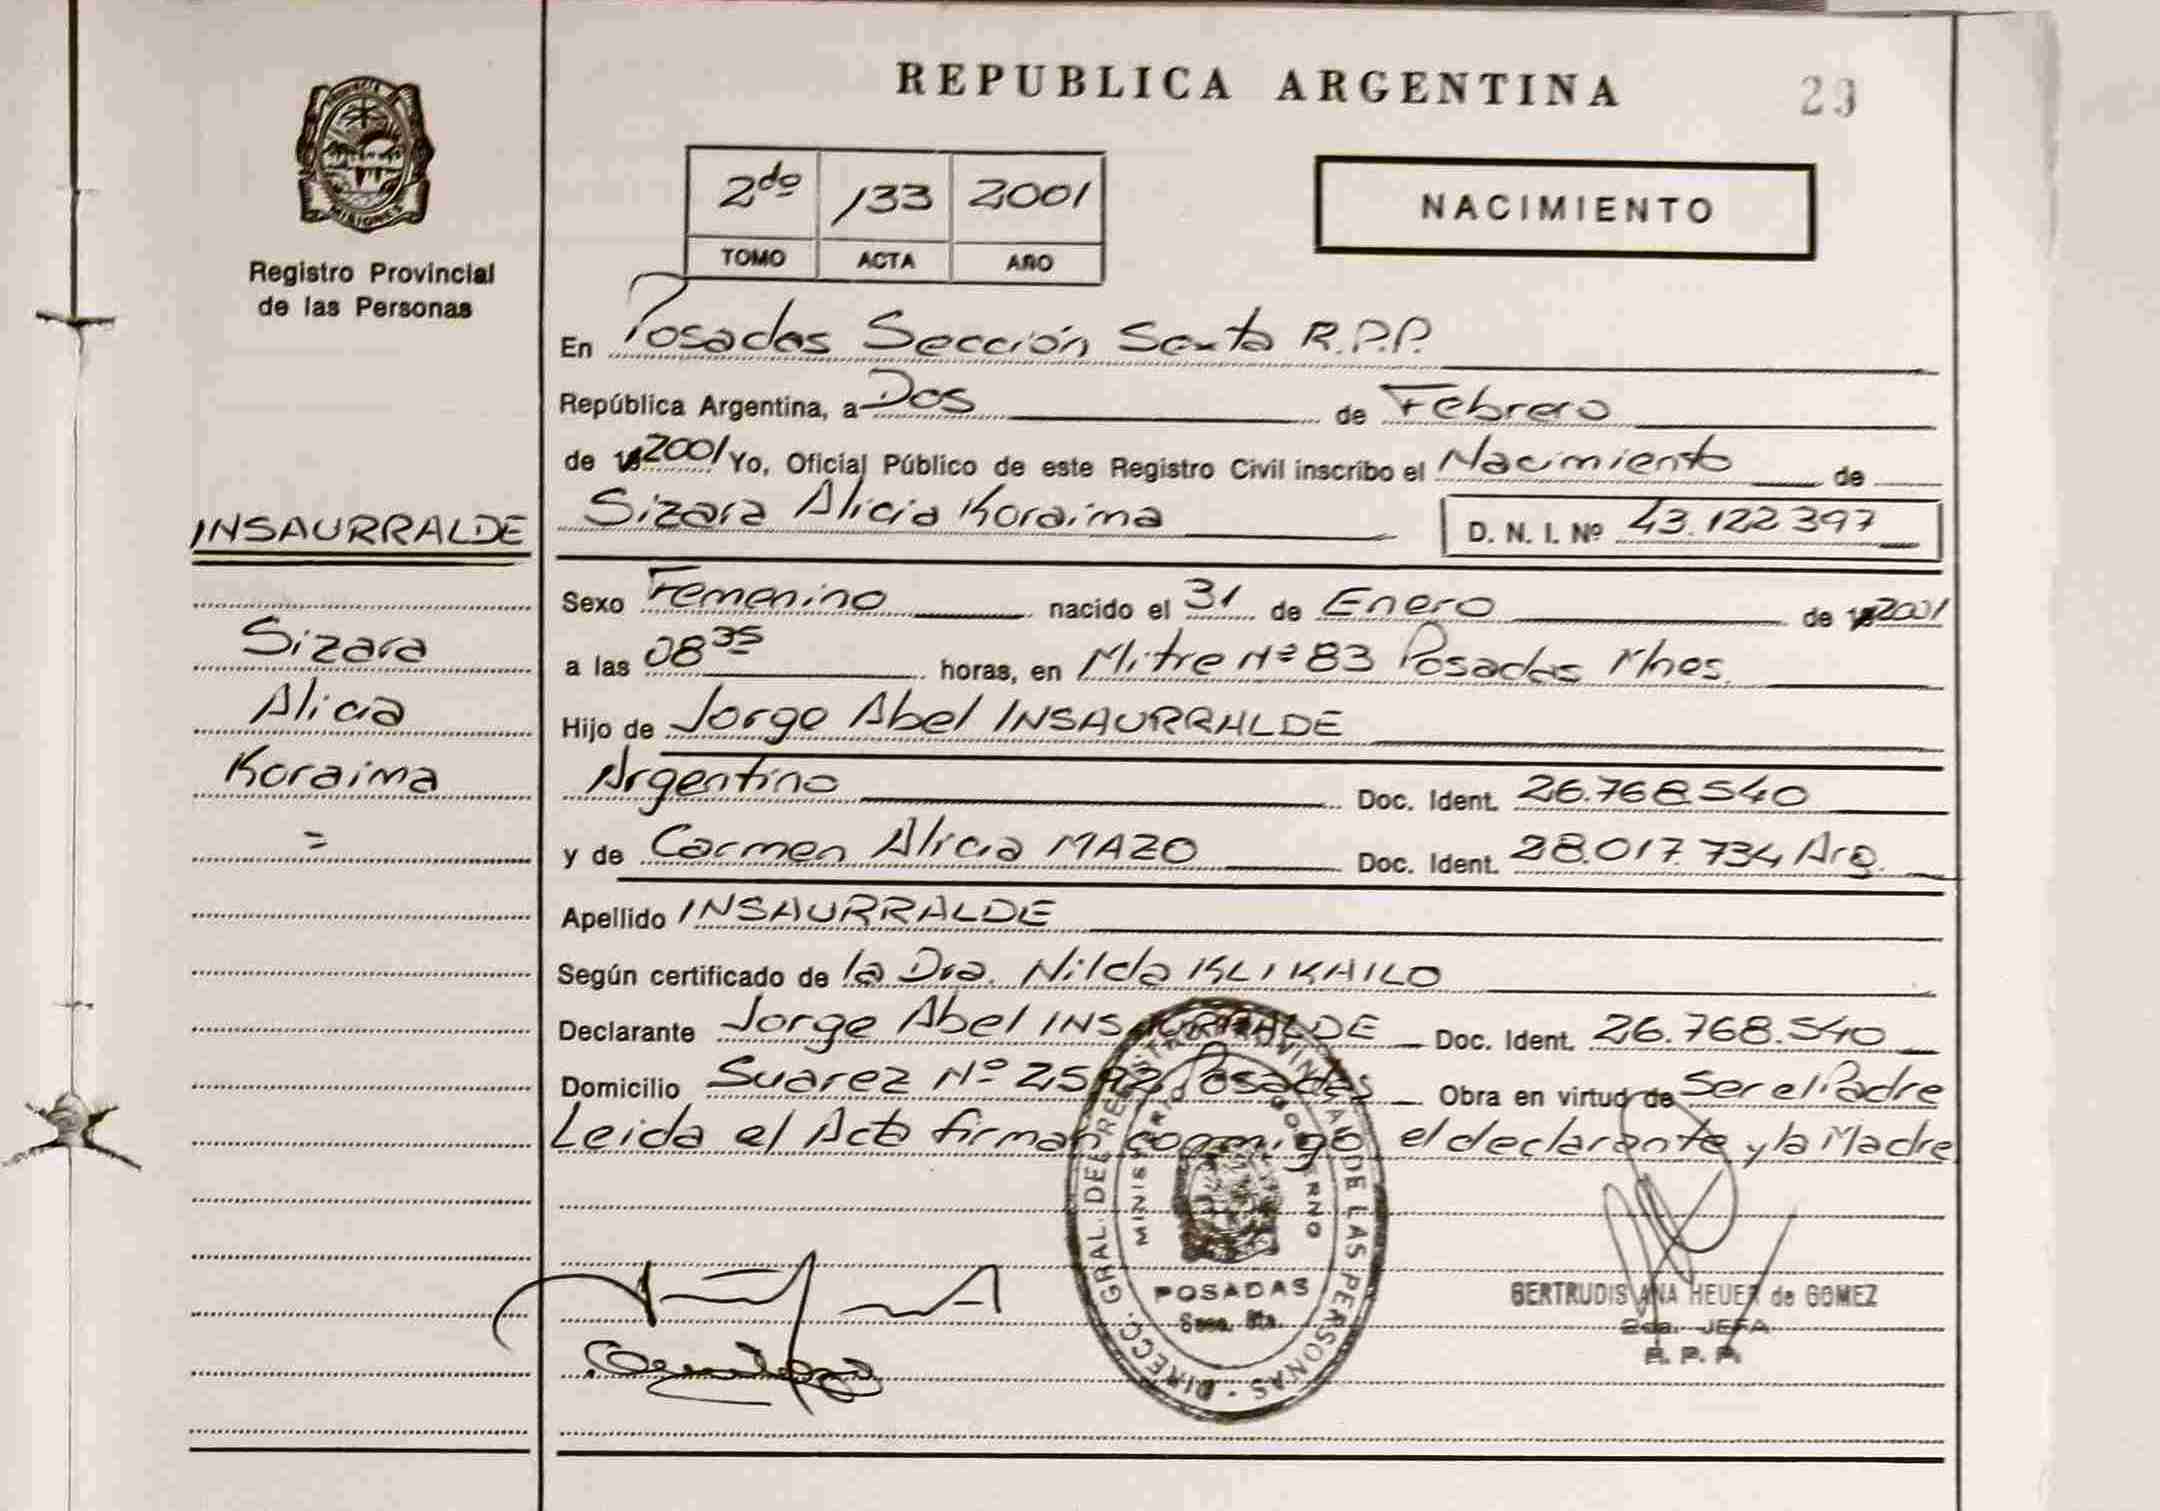 REPUBLICA ARGENTINA
29
MISIONES
Registro Provincial
de las Personas
2do 133 2001
TOMO ACTA AÑO
NACIMIENTO
En Posadas Sección Sexta R.P.P.
República Argentina, a Dos de Febrero
de 2001 Yo, Oficial Público de este Registro Civil inscribo el Nacimiento de
INSAURRALDE
Sizara Alicia Koraima D. N. I. Nº 43.122.397
Sexo Femenino nacido el 31 de Enero de 2001
Sizara
a las 08 35 horas, en Mitre Nº 83 Posadas Mnes.
Alicia
Hijo de Jorge Abel INSAURRALDE
Koraima
Argentino Doc. Ident. 26.768.540
y de Carmen Alicia MAZO Doc. Ident. 28.017.734 Arg.
Apellido INSAURRALDE
Según certificado de la Dra. Nilda KLIKAILO
Declarante Jorge Abel INSAURRALDE Doc. Ident. 26.768.540
Domicilio Suarez Nº Posadas Obra en virtud de Ser el Padre
Leida el Acta firman conmigo el declarante y la Madre
DIRECC. GRAL. DEL REGISTRO PROVINCIAL DE LAS PERSONAS
MINISTERIO GOBIERNO
POSADAS
Secc. 6ta.
GERTRUDIS ANA HEUER de GOMEZ
2da. JEFA
R. P. P.